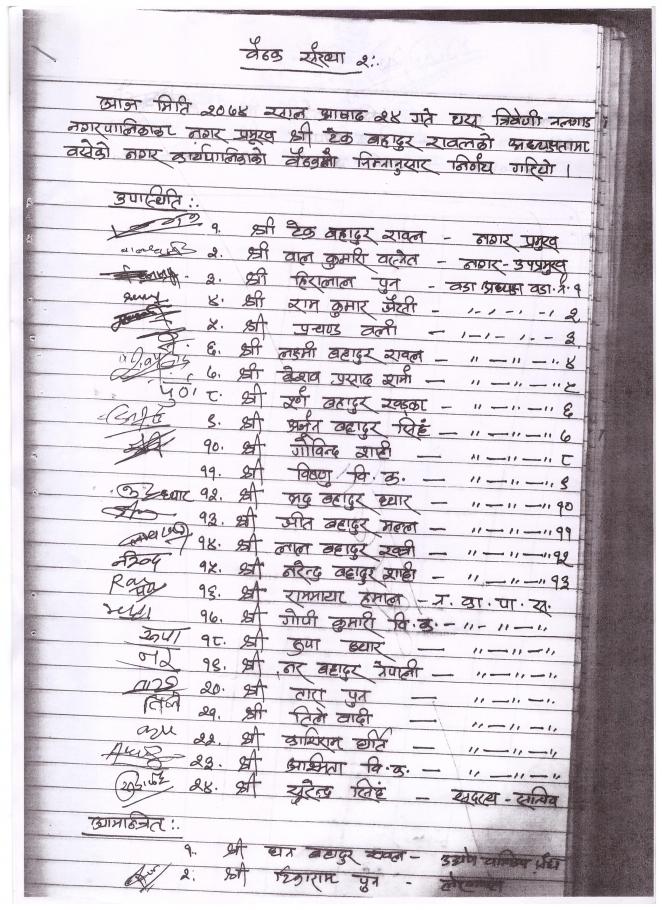 बैठक संख्या २ः.
आज मिति २०७४ साल आषाढ २४ गते यस त्रिवेणी नलगाड
नगरपालिकाका नगर प्रमुख श्री टेक बहादुर रावलको अध्यक्षतामा
बसेको नगर कार्यपालिकाको बैठकले निम्नानुसार निर्णय गरियो ।
उपस्थिति :.
१. श्री टेक बहादुर रावल - नगर प्रमुख
२. श्री बाल कुमारी बस्नेत - नगर-उपप्रमुख
३. श्री हिरालाल पुन - वडा अध्यक्ष वडा.नं. १
४. श्री राम कुमार जैसी - ,, - ,, - २
५. श्री प्रचण्ड वली - ,, - ,, - ३
६. श्री लक्ष्मी बहादुर रावल - ,, - ,, - ४
७. श्री केशव प्रसाद शर्मा - ,, - ,, - ५
८. श्री बहादुर खड्का - ,, - ,, - ६
९. श्री अनंत बहादुर सिंह - ,, - ,, - ७
१०. श्री गोविन्द शाही - ,, - ,, - ८
११. श्री विष्णु वि.क. - ,, - ,, - ९
१२. श्री जदु बहादुर घ्यार - ,, - ,, - १०
१३. श्री जीत बहादुर मल्ल - ,, - ,, - ११
१४. श्री लाल बहादुर खत्री - ,, - ,, - १२
नरेन्द्र १५. श्री नरेन्द्र बहादुर शाही - ,, - ,, - १३
१६. श्री राममाया हमाल - न. का. पा. स.
१७. श्री गोपी कुमारी वि.क. - ,, - ,, - ,,.
रूपा १८. श्री रूपा घ्यार - ,, - ,, - ,,.
१९. श्री नर बहादुर नेपाली - ,, - ,, - ,,.
२०. श्री तारा पुन - ,, - ,, - ,,.
२१. श्री तिले वादी - ,, - ,, - ,,.
२२. श्री काशिराम घर्ति - ,, - ,, - ,,.
२३. श्री अस्मिता वि.क. - ,, - ,, - ,,.
२४. श्री सुरेन्द्र सिंह - सदस्य-सचिव
आमन्त्रित :.
१. श्री बहादुर रावल - उद्योग वाणिज्य
२. श्री टिकाराम पुन -